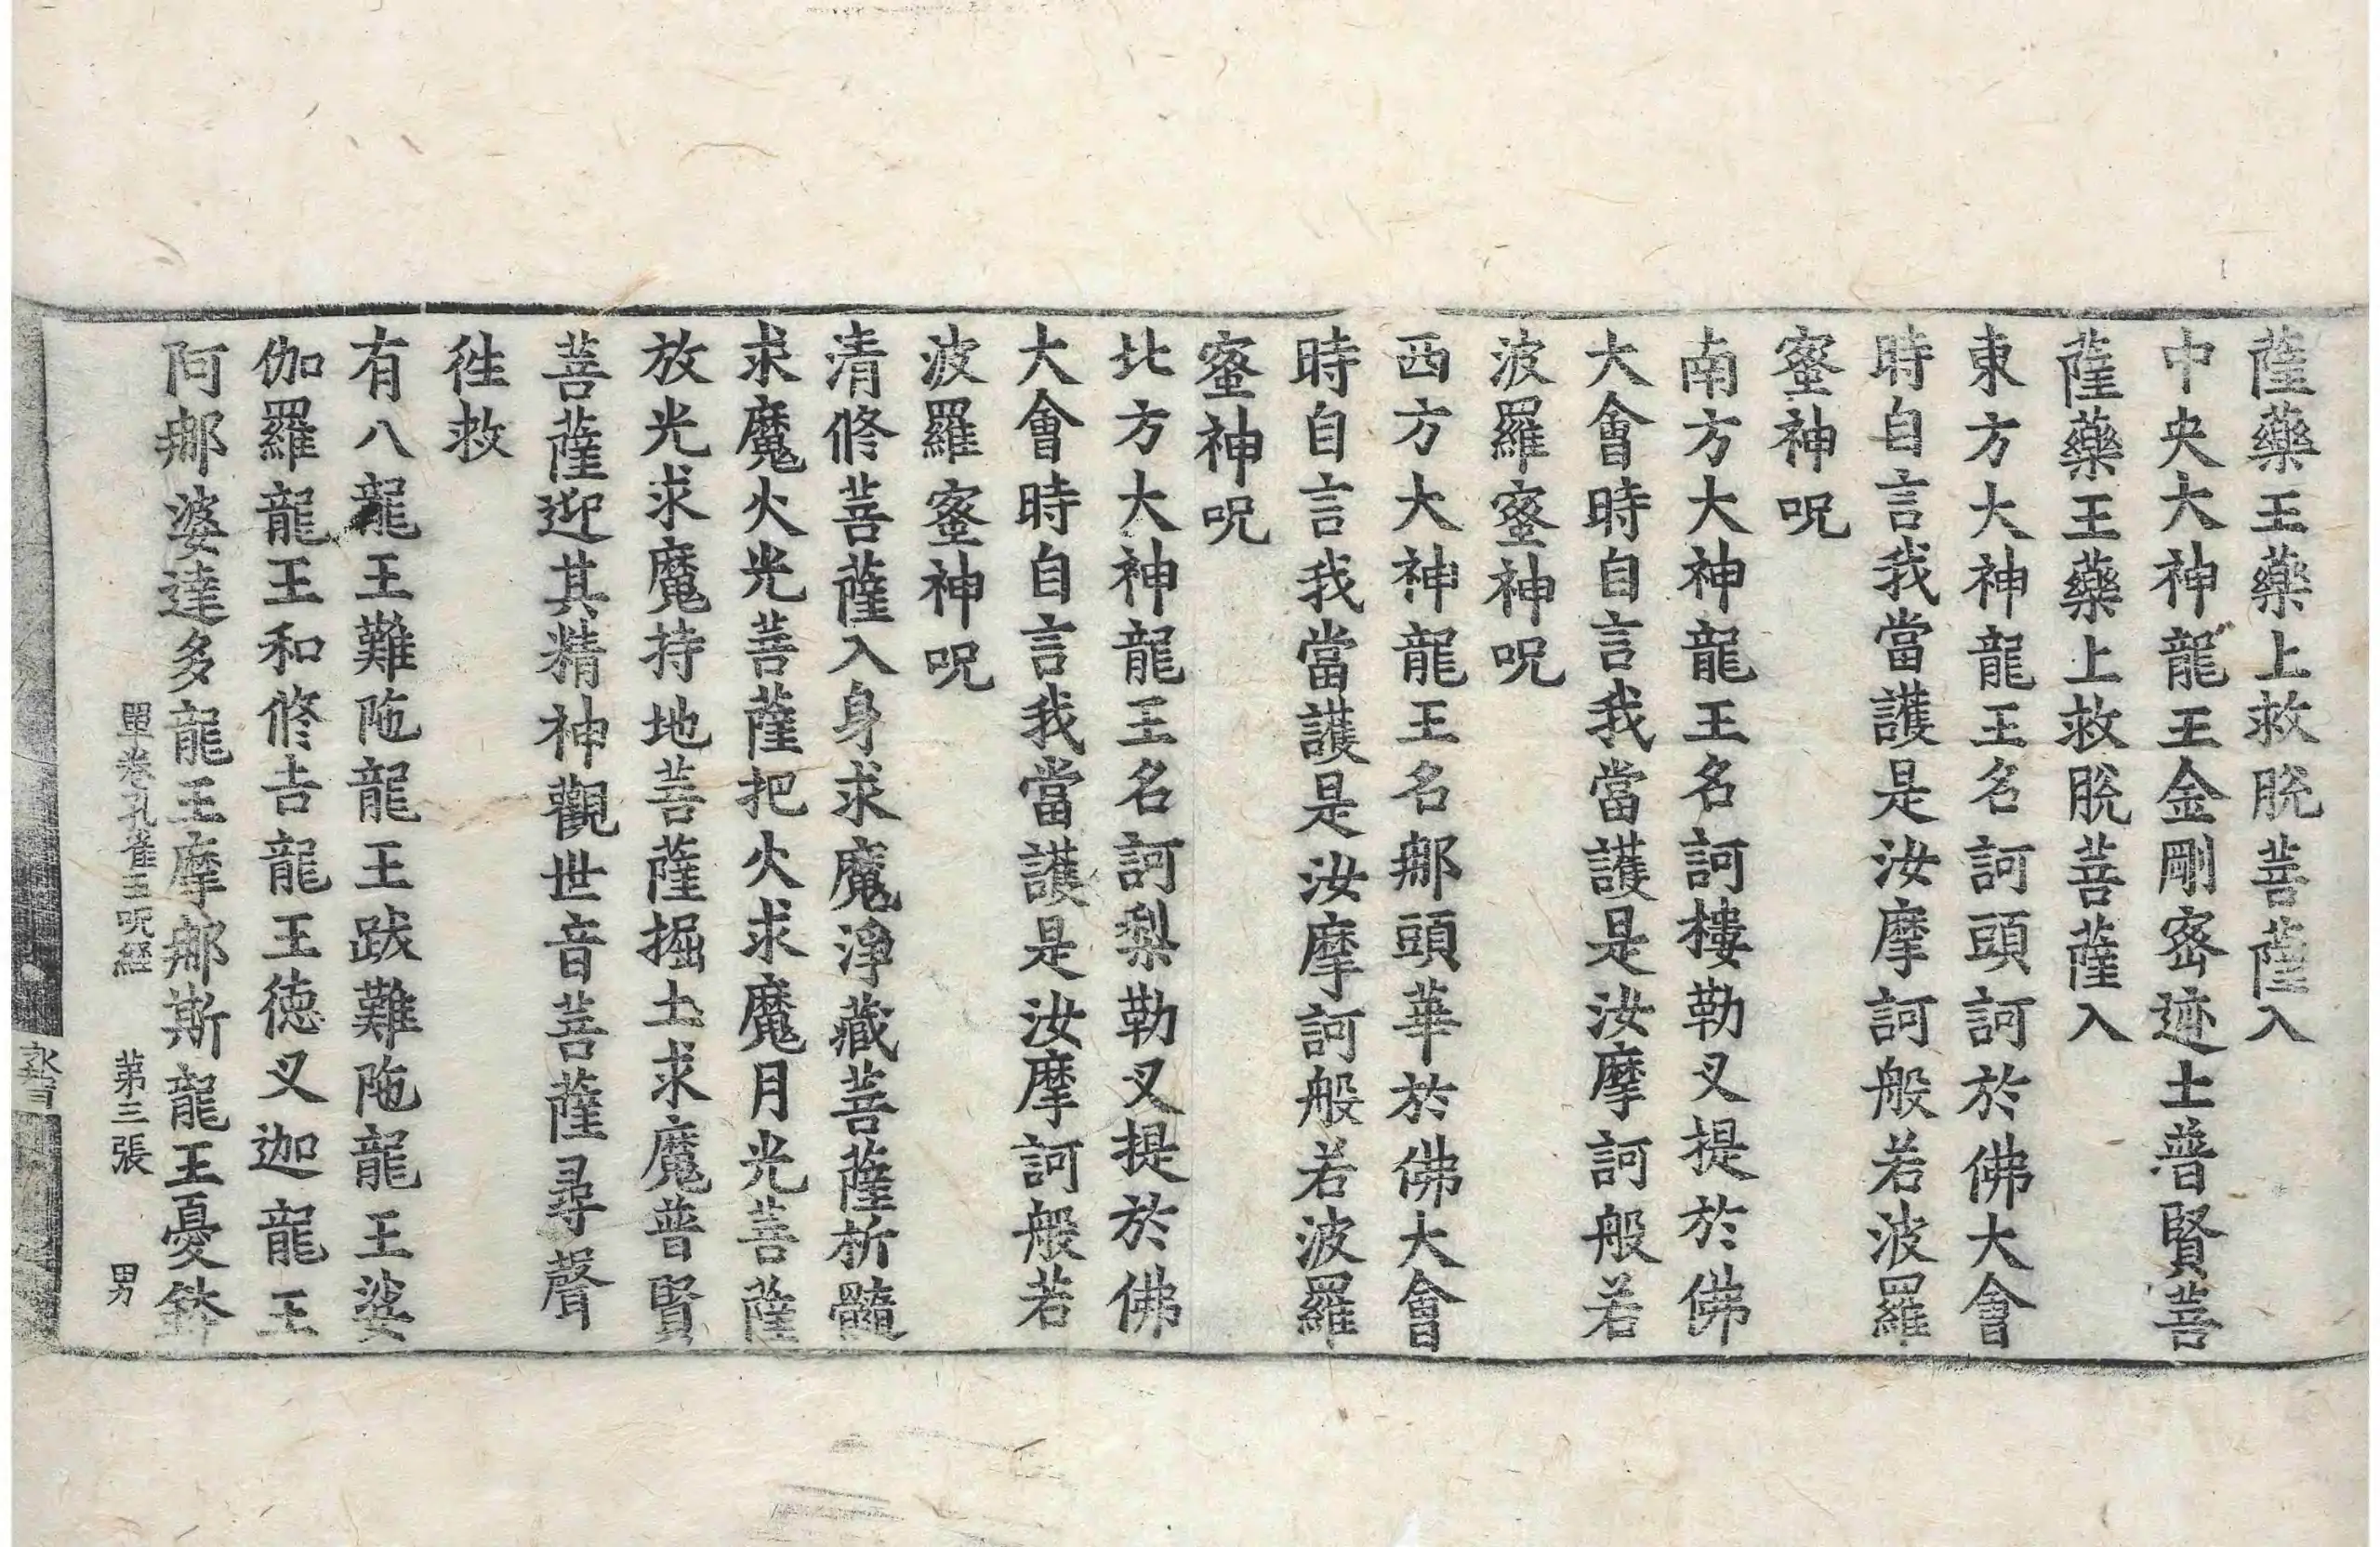 薩藥王藥上救脫菩薩入
中央大神龍王金剛密迹士普賢菩
薩藥王藥上救脫菩薩入
東方大神龍王名訶頭訶於佛大會
時自言我當護是汝摩訶般若波羅
蜜神呪
南方大神龍王名訶樓勒叉提於佛
大會時自言我當護是汝摩訶般若
波羅蜜神呪
西方大神龍王名郍頭華於佛大會
時自言我當護是汝摩訶般若波羅
蜜神呪
北方大神龍王名訶梨勒叉提於佛
大會時自言我當護是汝摩訶般若
波羅蜜神呪
清修菩薩入身求魔淨藏菩薩析髓
求魔火光菩薩把火求魔月光菩薩
放光求魔持地菩薩掘土求魔普賢
菩薩迎其精神觀世音菩薩尋聲
徃救
有八龍王難陁龍王跋難陁龍王娑
伽羅龍王和修吉龍王德叉迦龍王
阿郍婆達多龍王摩郍斯龍王憂鉢
單卷孔雀王呪経 第三張 男